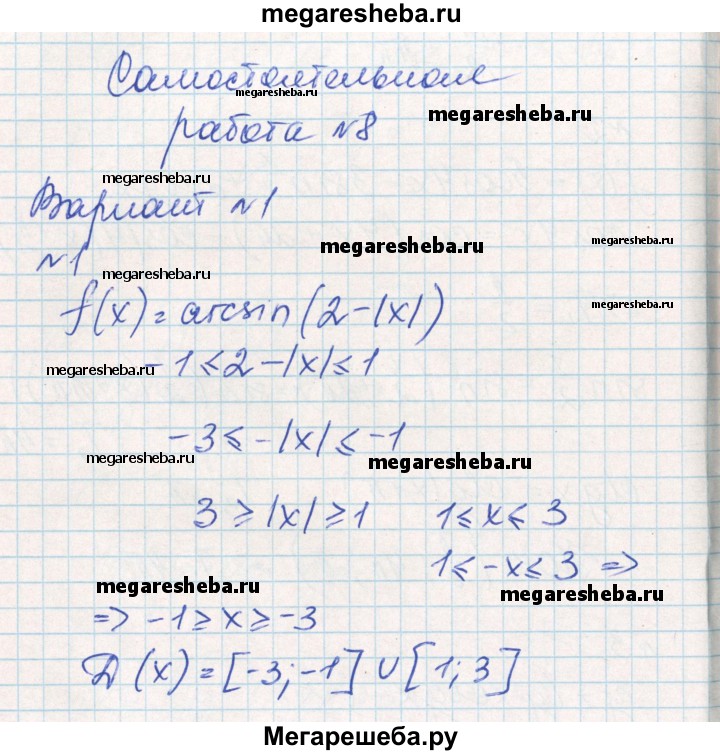 megaresheba.ru
Самостоятельная
megaresheba.ru
megaresheba.ru
работа №8
megaresheba.ru
Вариант №1
megaresheba.ru
megaresheba.ru
№1
megaresheba.ru
f(x)=arcsin(2-|x|)
megaresheba.ru
-1≤2-|x|≤1
megaresheba.ru
megaresheba.ru
-3≤-|x|≤-1
megaresheba.ru
megaresheba.ru
3≥|x|≥1 1≤x≤3
1≤-x≤3 =>
megaresheba.ru
megaresheba.ru
=> -1≥x≥-3
D(x)=[-3;-1]∪[1;3]
Мегарешеба.ру